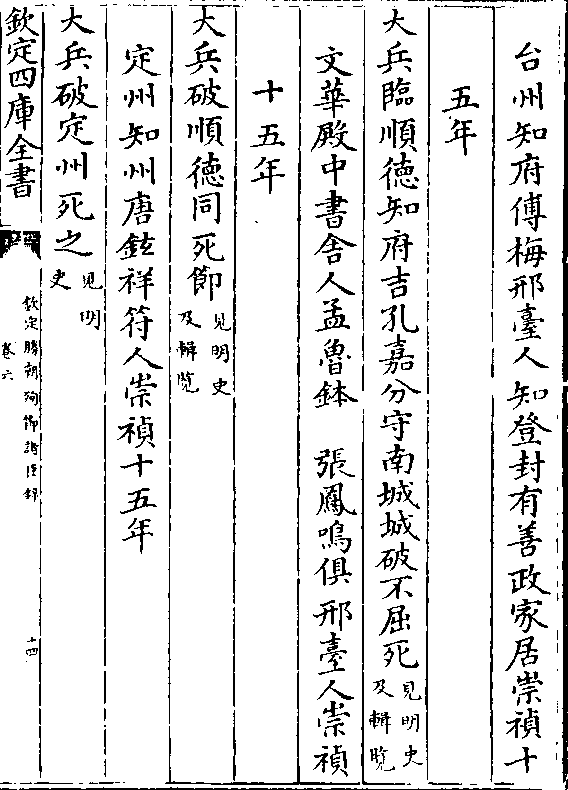 台州知府傅梅邢臺人知登封有善政家居崇禎十
五年
大兵臨順德知府吉孔嘉分守南城城破不屈死見明史
及輯覽
文華殿中書舍人孟魯鉢　張鳳鳴俱邢臺人崇禎
十五年
大兵破順德同死節見明史
及輯覽
定州知州唐鉉祥符人崇禎十五年
大兵破定州死之見明
史
欽定四庫全書
欽定勝朝殉節諸臣錄
卷六
十四